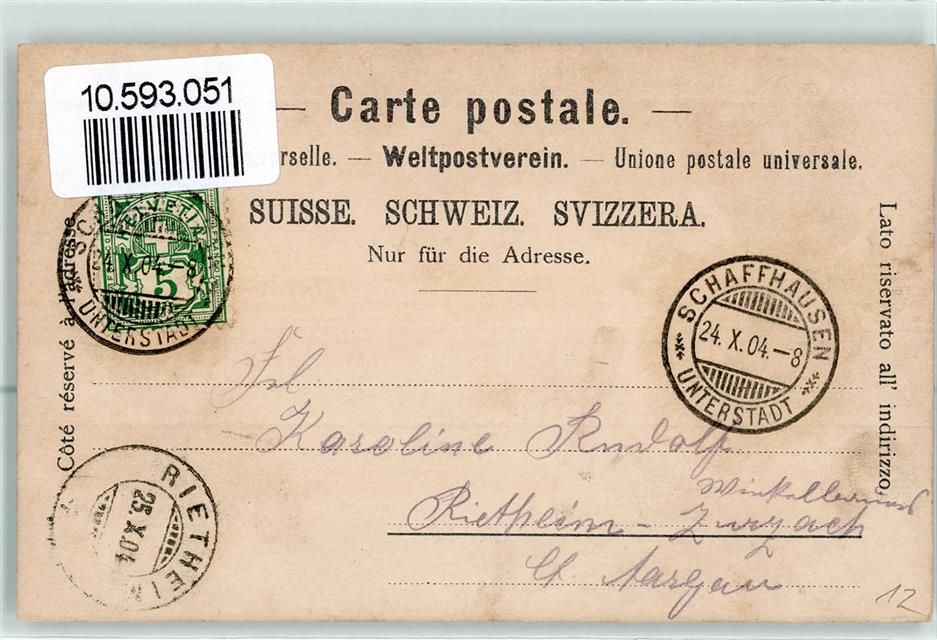 10.593.051
— Carte postale. —
rselle. — Weltpostverein. — Unione postale universale.
SUISSE. SCHWEIZ. SVIZZERA.
Nur für die Adresse.
Côté réservé à l'adresse.
Lato riservato all' indirizzo.
HELVETIA
5
24.X.04.–8
UNTERSTADT
SCHAFFHAUSEN
24.X.04.–8
UNTERSTADT
Frl
Karoline Rudolf
Rietheim - Zurzach
Ct. Aargau
RIETHEIM
25.X.04
12